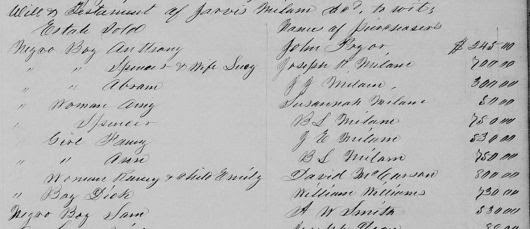 Will & Testament of Jarvis Milam decd, to wit;
Estate Sold Name of purchasers
Negro Boy Anthony John Pryor $ 245.00
" " Spencer & Wife Lucy Joseph W Milam 700 00
" " Abram J J Milam, 300 00
" Woman Amy Susannah Milam 50 00
" Spencer B L Milam 750 00
" Girl Fanny J E Milam 530 00
" " Ann B L Milam 750 00
" Woman Nancy & Child Emily David McCarson 800 00
" Boy Dick William Williams 730 00
Negro Boy Sam A W Smith 530 00
Joseph